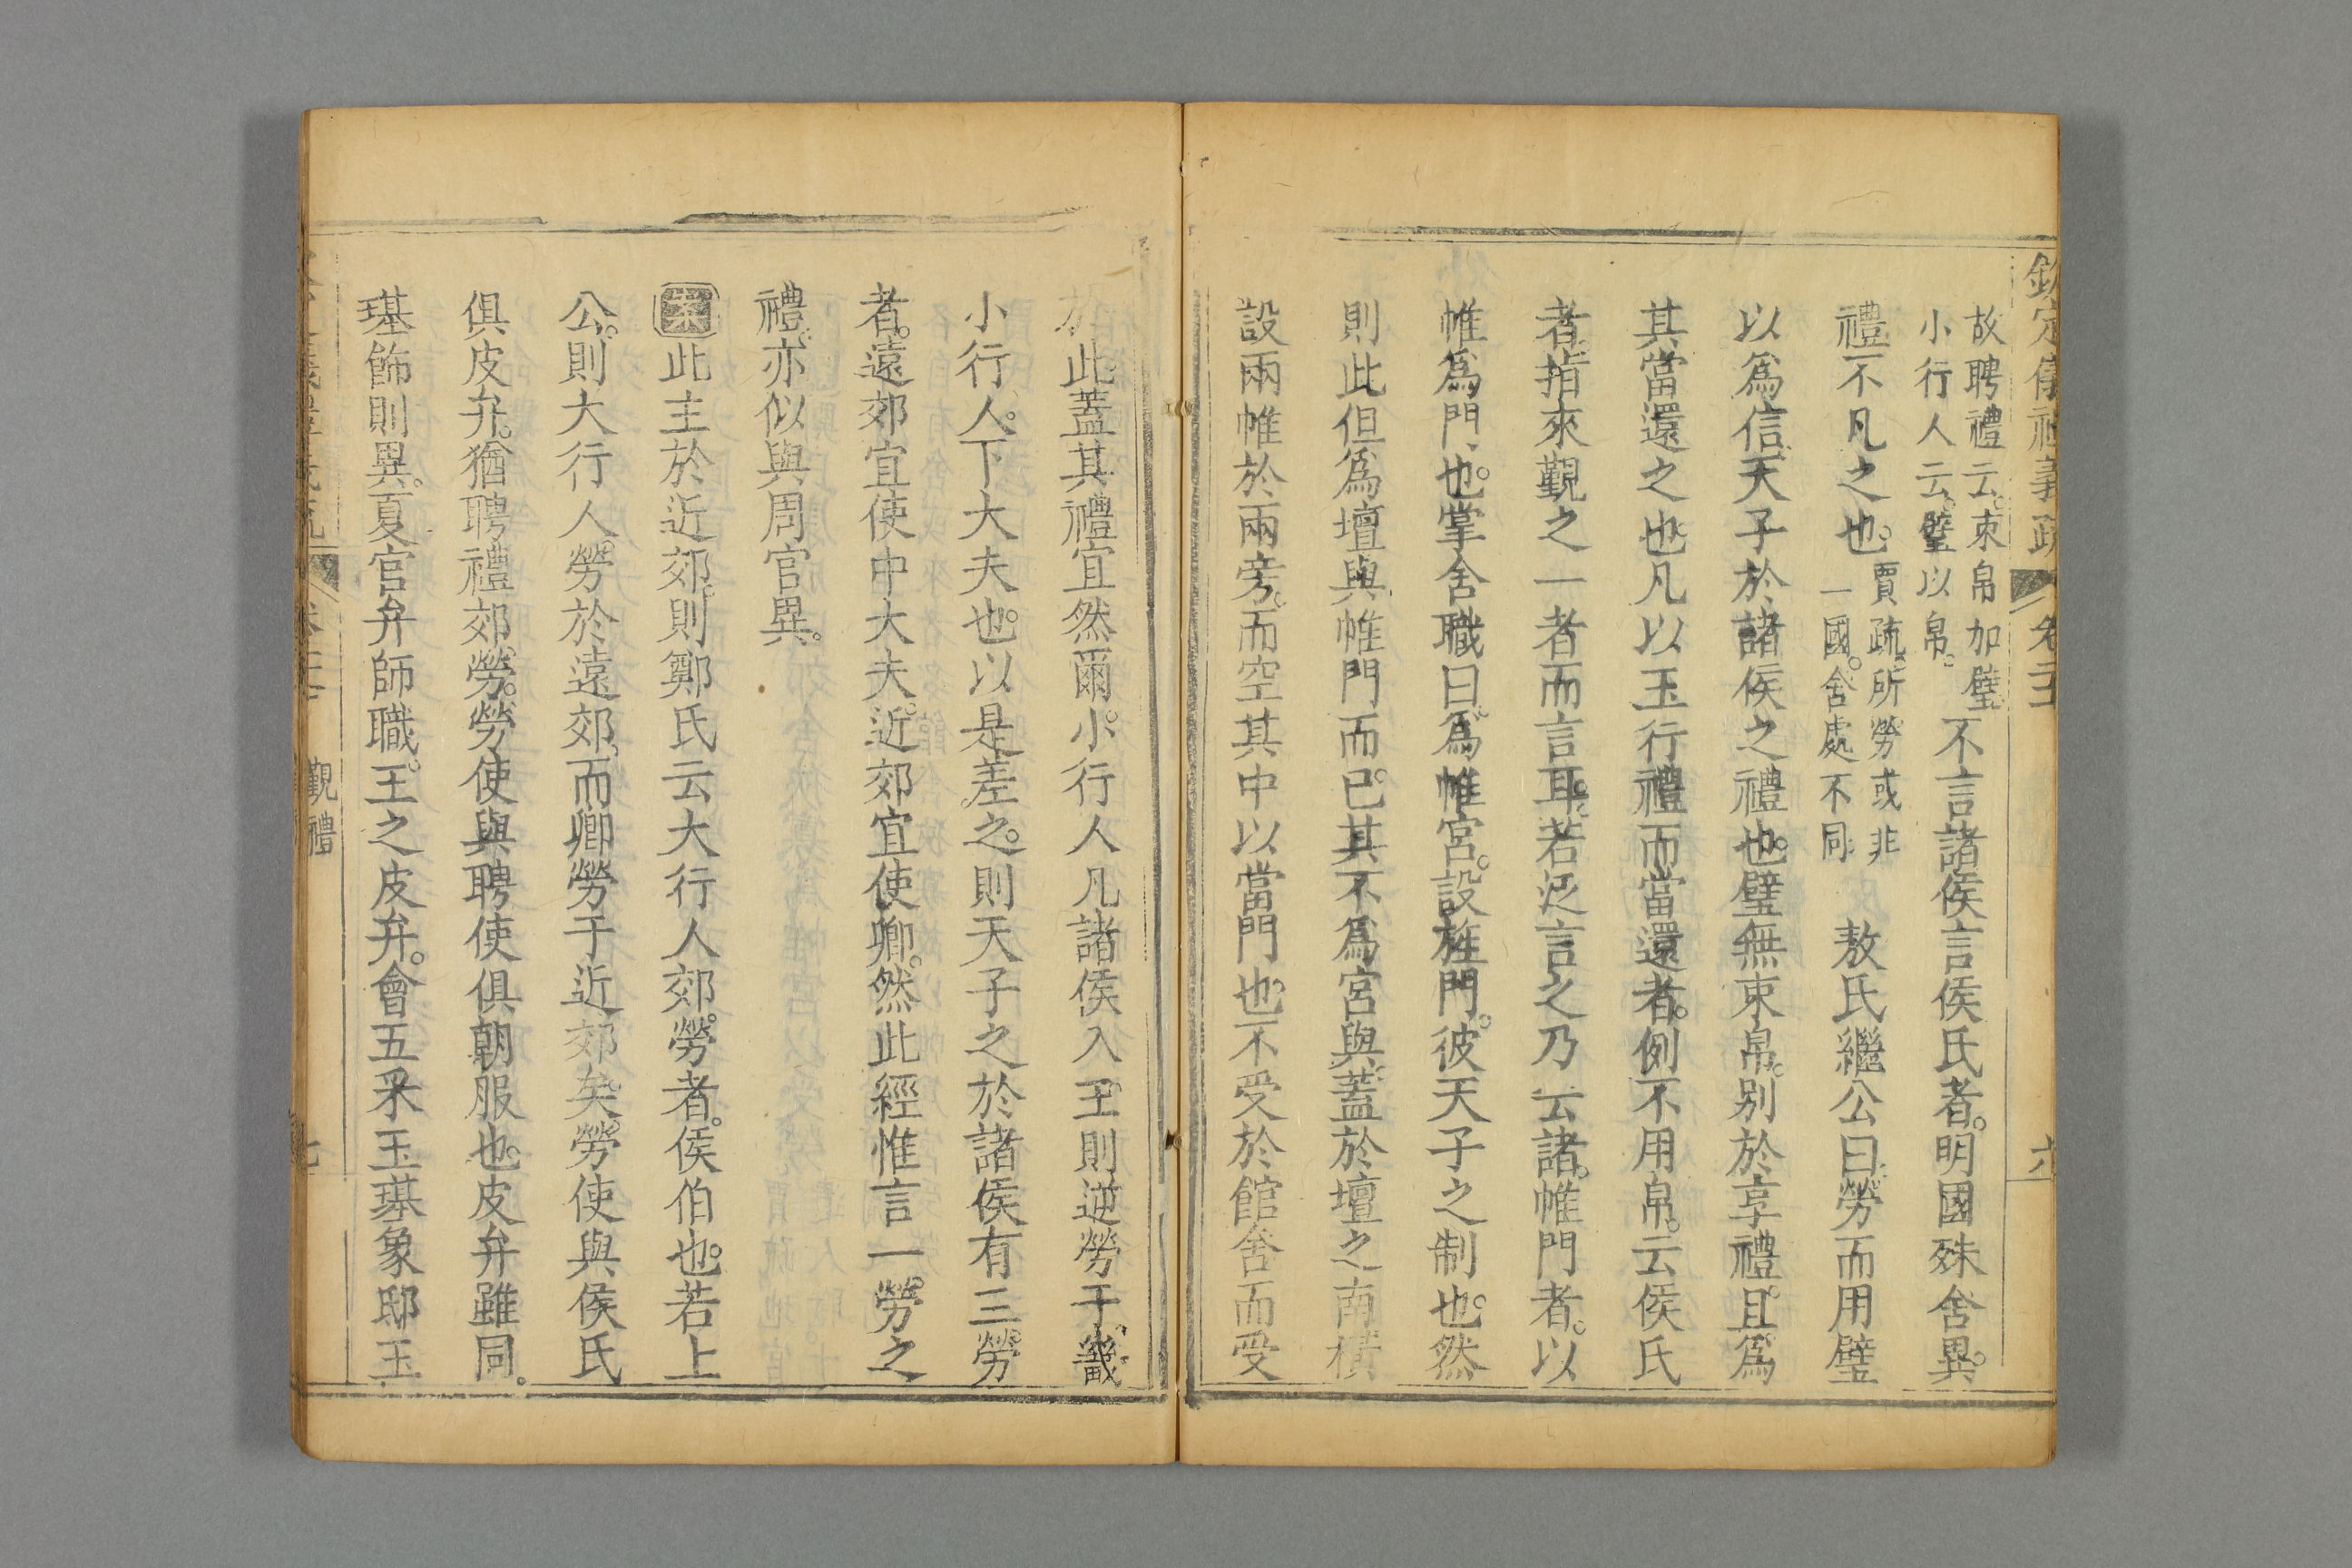 欽定儀禮義疏 卷二 六
故聘禮云。束帛加璧。
小行人云。璧以帛。
不言諸侯言侯氏者。明國殊舍異。
禮不凡之也。
賈疏。所勞或非
一國。舍處不同。
敖氏繼公曰。勞而用璧
以爲信。天子於諸侯之禮也。璧無束帛。别於享禮。且爲
其當還之也。凡以玉行禮而當還者。例不用帛。云侯氏
者。指來覲之一者而言耳。若泛言之乃云諸。帷門者。以
帷爲門也。掌舍職曰。爲帷宮。設旌門。彼天子之制也。然
則此但爲壇與帷門而已。其不爲宮與。蓋於壇之南橫
設兩帷於兩旁。而空其中以當門也。不受於館舍而受
於此。蓋其禮宜然爾。小行人凡諸侯入王則逆勞于畿
小行人。下大夫也。以是差之。則天子之於諸侯有三勞
者。遠郊宜使中大夫。近郊宜使卿。然此經惟言一勞之
禮。亦似與周官異。
案此主於近郊。則鄭氏云大行人郊勞者。侯伯也。若上
公。則大行人。勞於遠郊。而卿勞于近郊矣。勞使與侯氏
俱皮弁。猶聘禮郊勞。勞使與聘使俱朝服也。皮弁雖同。
璂飾則異。夏官弁師職。王之皮弁。會五采玉璂象邸玉
覲禮 七